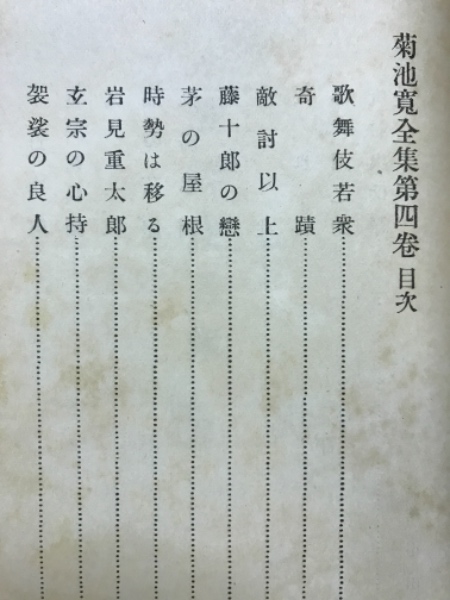 菊池寬全集第四卷 目次
歌舞伎若衆
奇蹟
敵討以上
藤十郎の戀
茅の屋根
時勢は移る
岩見重太郎
玄宗の心持
袈裟の良人